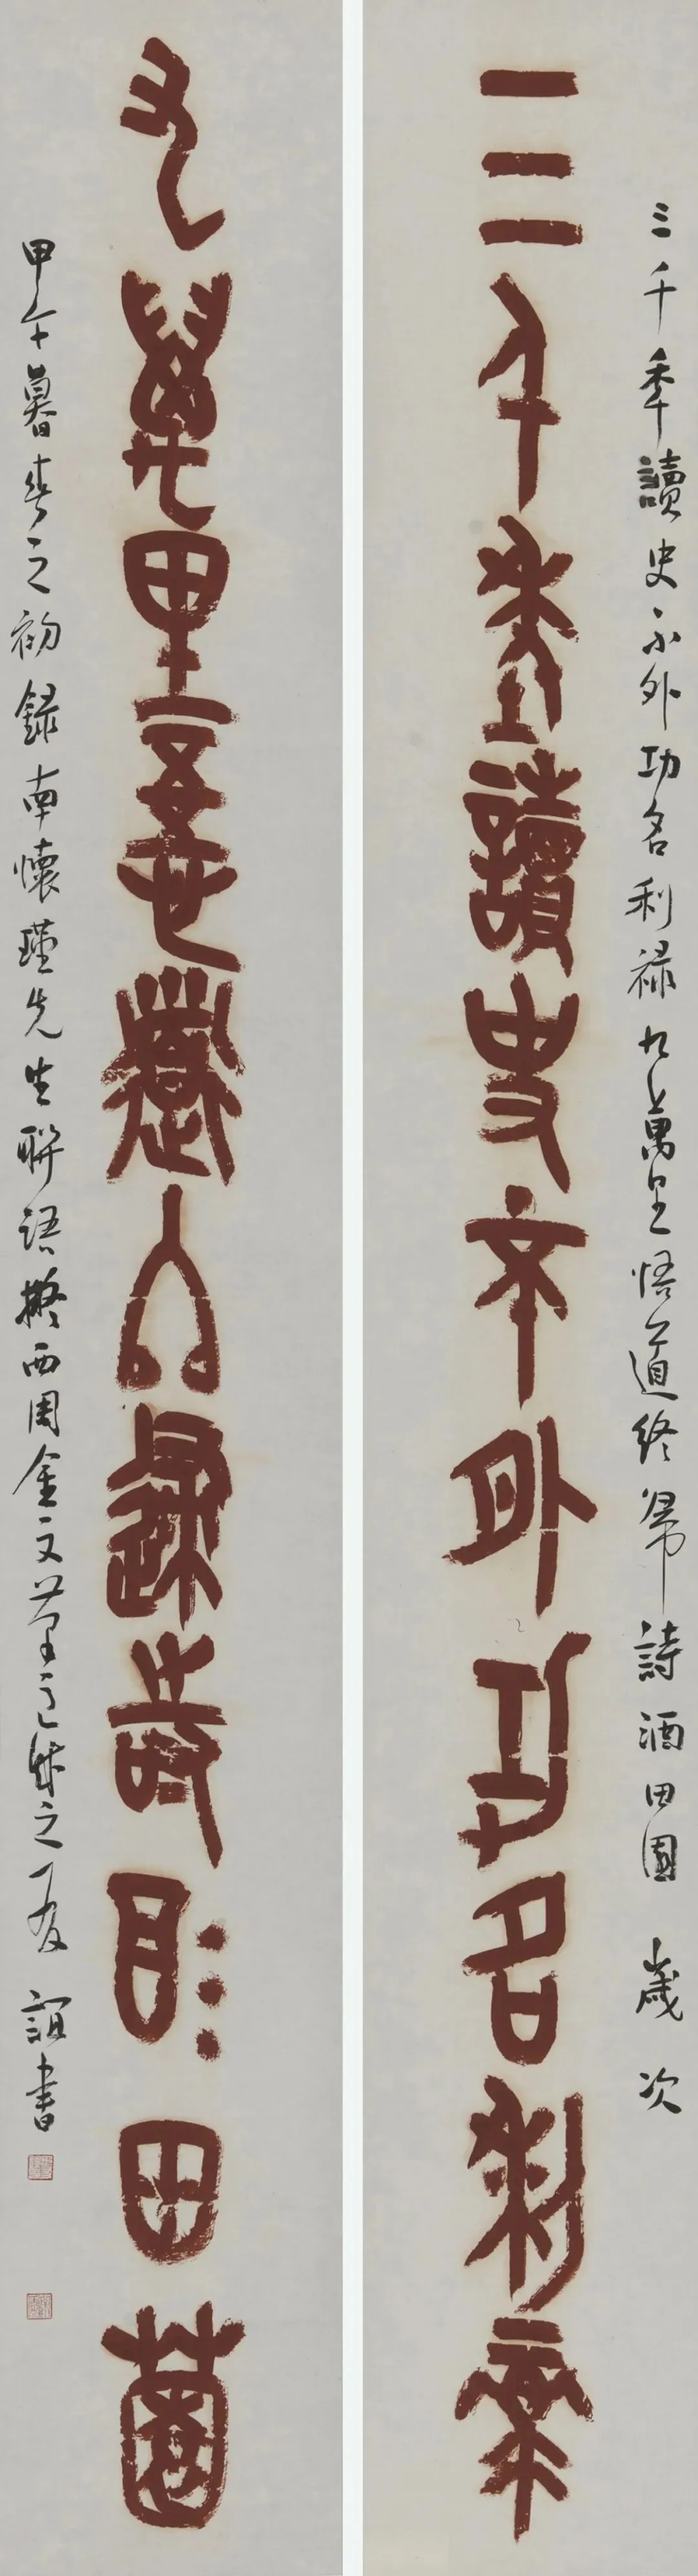 三千秊讀史不外功名利禄九萬里悟道終歸詩酒田園 歲次
三千年讀史不外功名利祿
九萬里悟道終歸詩酒田園
甲午暮春之初録南懷瑾先生聯語擬西周金文筆意之 誼書